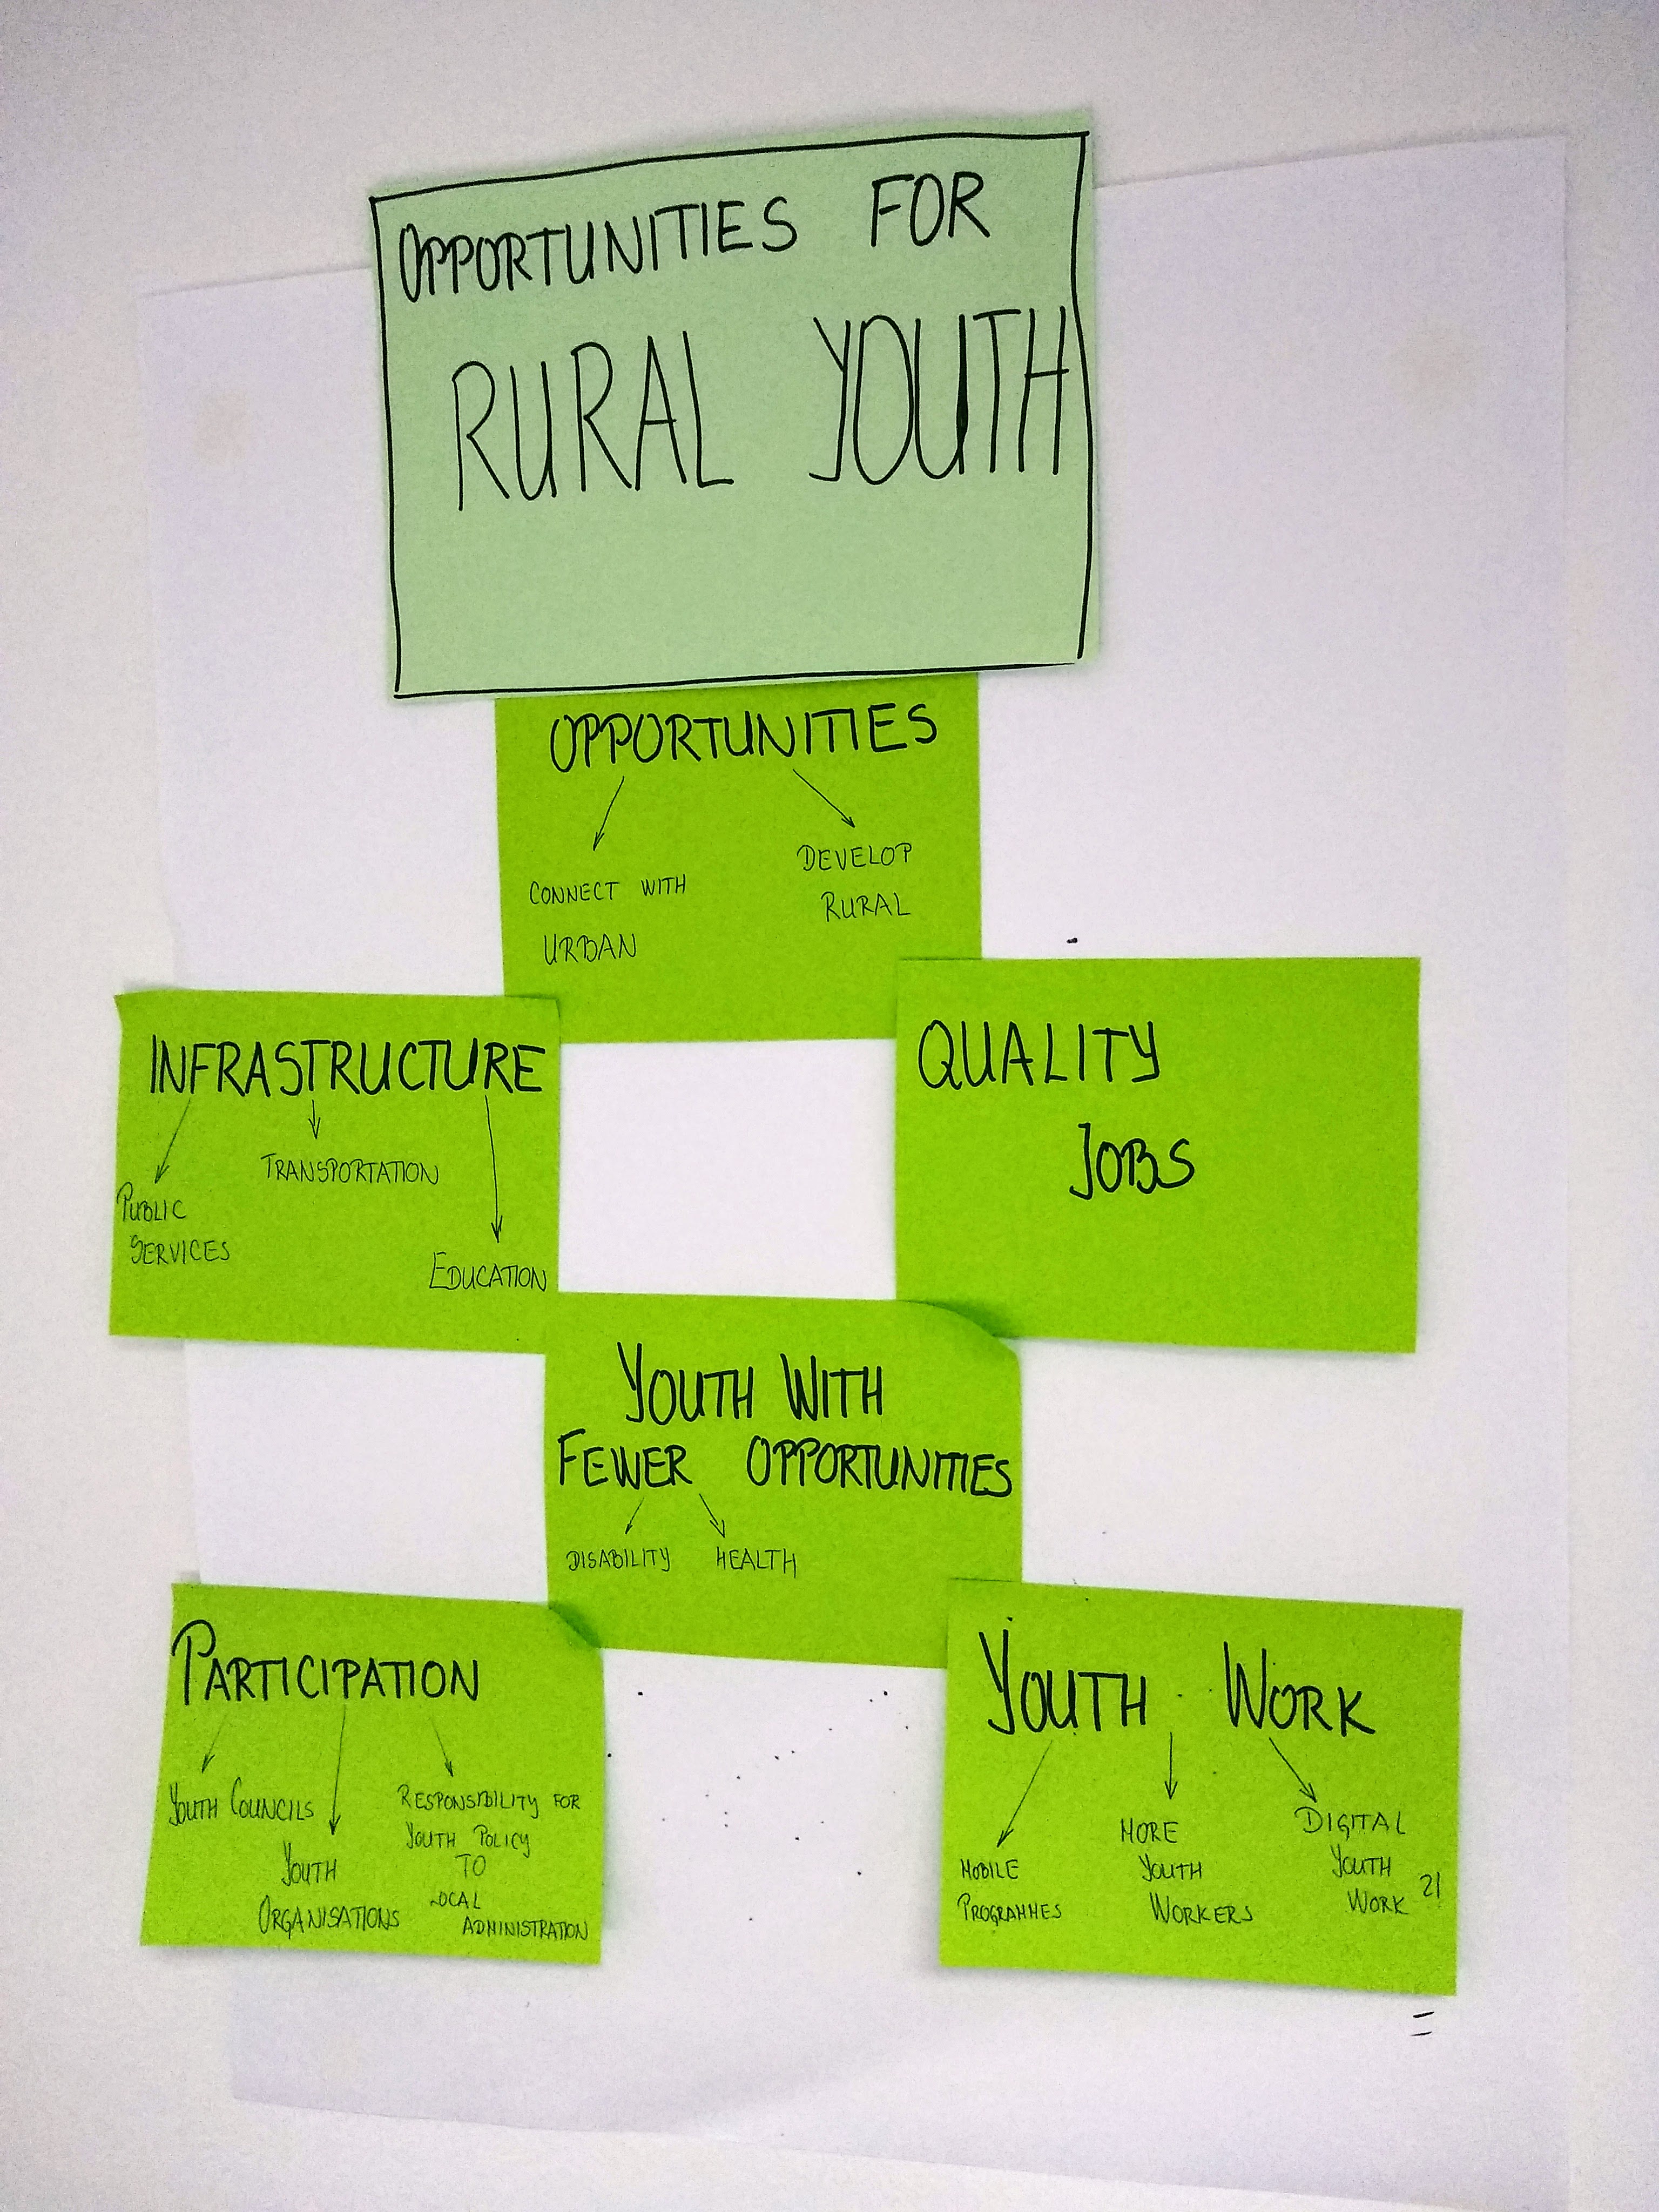 OPPORTUNITIES FOR
RURAL YOUTH
OPPORTUNITIES
CONNECT WITH
URBAN
DEVELOP
RURAL
INFRASTRUCTURE
PUBLIC
SERVICES
TRANSPORTATION
EDUCATION
QUALITY
JOBS
YOUTH WITH
FEWER OPPORTUNITIES
DISABILITY
HEALTH
PARTICIPATION
YOUTH COUNCILS
YOUTH
ORGANISATIONS
RESPONSIBILITY FOR
YOUTH POLICY
TO
LOCAL
ADMINISTRATION
YOUTH WORK
MOBILE
PROGRAMMES
MORE
YOUTH
WORKERS
DIGITAL
YOUTH
WORK